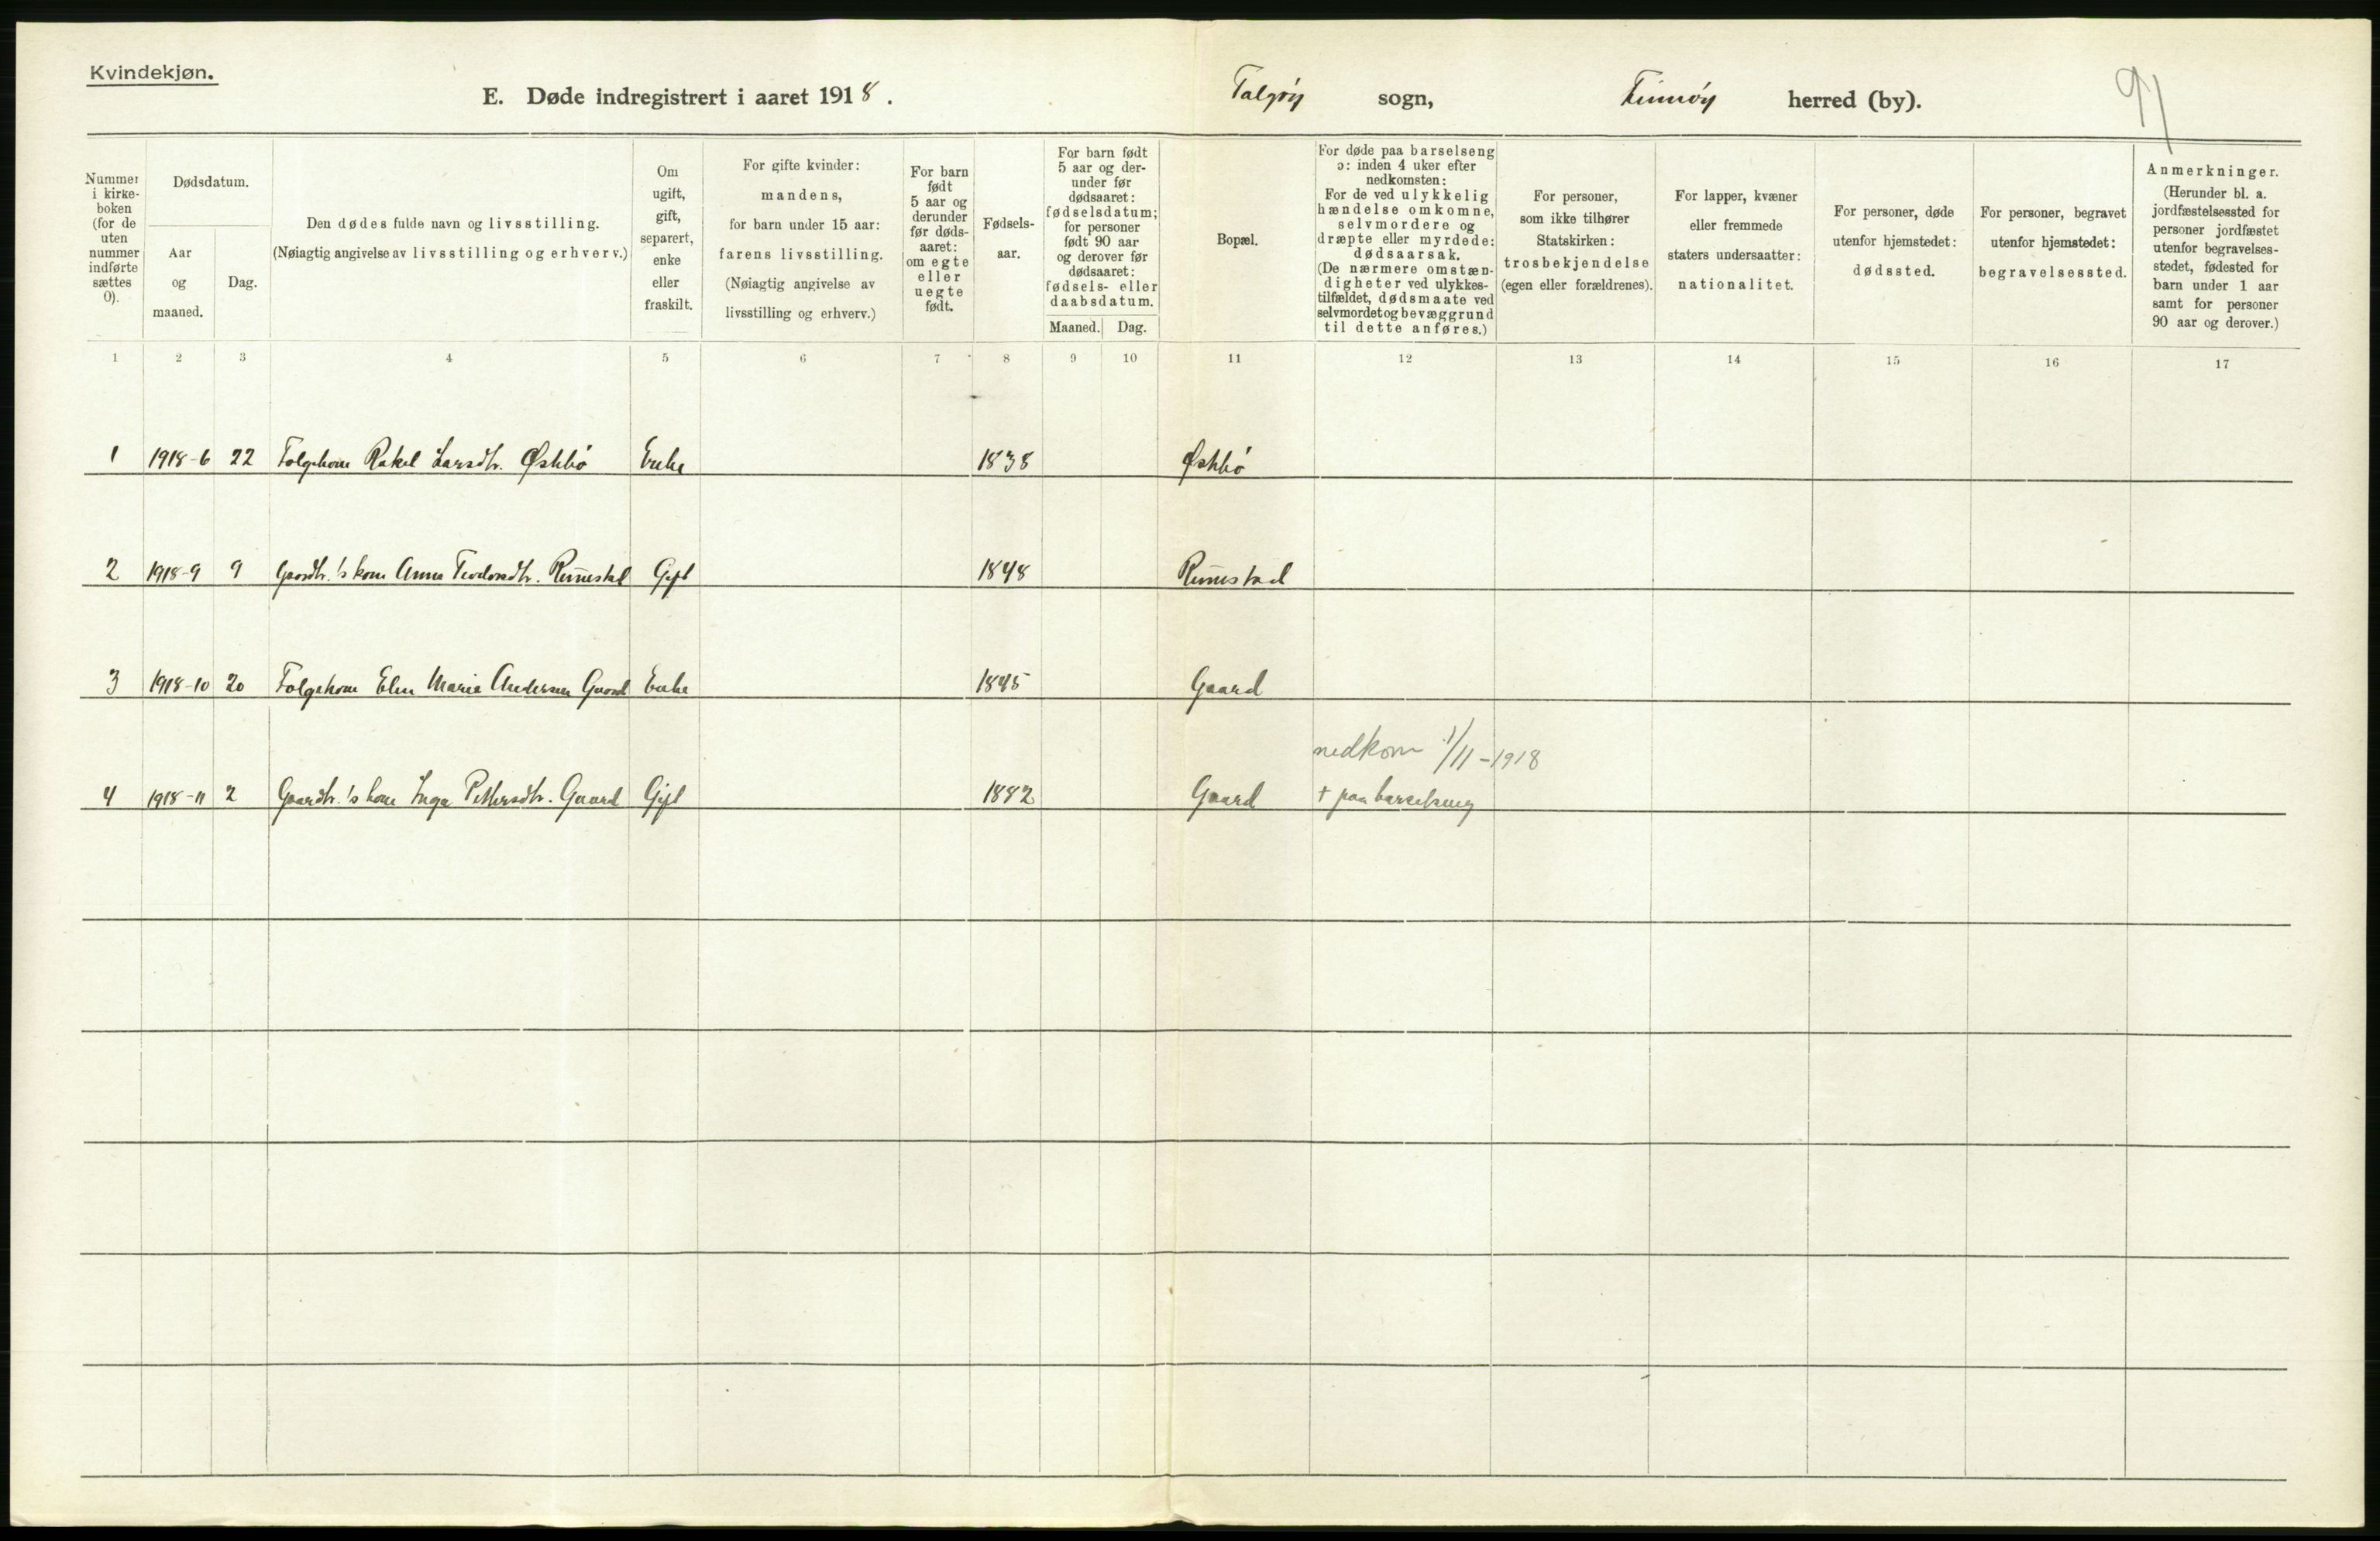 Kvindekjøn.
E. Døde indregistrert i aaret 1918.
Talgøy sogn, Finnøy herred (by).
91
Nummer
i kirke-
boken
(for de
uten
nummer
indførte
sættes
0).
Dødsdatum.
Aar
og
maaned.
Dag.
Den dødes fulde navn og livsstilling.
(Nøiagtig angivelse av livsstilling og erhverv.)
Om
ugift,
gift,
separert,
enke
eller
fraskilt.
For gifte kvinder:
mandens,
for barn under 15 aar:
farens livsstilling.
(Nøiagtig angivelse av
livsstilling og erhverv.)
For barn
født
5 aar og
derunder
før døds-
aaret:
om egte
eller
uegte
født.
Fødsels-
aar.
For barn født
5 aar og der-
under før
dødsaaret:
fødselsdatum;
for personer
født 90 aar
og derover før
dødsaaret:
fødsels- eller
daabsdatum.
Maaned. Dag.
Bopæl.
For døde paa barselseng
ɔ: inden 4 uker efter
nedkomsten:
For de ved ulykkelig
hændelse omkomne,
selvmordere og
dræpte eller myrdede:
dødsaarsak.
(De nærmere omstæn-
digheter ved ulykkes-
tilfældet, dødsmaate ved
selvmordet og bevæggrund
til dette anføres.)
For personer,
som ikke tilhører
Statskirken:
trosbekjendelse
(egen eller forældrenes).
For lapper, kvæner
eller fremmede
staters undersaatter:
nationalitet.
For personer, døde
utenfor hjemstedet:
dødssted.
For personer, begravet
utenfor hjemstedet:
begravelsessted.
Anmerkninger.
(Herunder bl. a.
jordfæstelsessted for
personer jordfæstet
utenfor begravelses-
stedet, fødested for
barn under 1 aar
samt for personer
90 aar og derover.)
1 2 3 4 5 6 7 8 9 10 11 12 13 14 15 16 17
1 1918-6 22 Folgekone Rakel Larsdtr. Østbø Enke 1838 Østbø
2 1918-9 9 Gaardbr.'s kone Anna Teodorsdtr. Reimestad Gift 1848 Reimestad
3 1918-10 20 Folgekone Elen Marie Andersen Gaard Enke 1845 Gaard
nedkom 1/11-1918
4 1918-11 2 Gaardbr.'s kone Inga Pettersdtr. Gaard Gift 1882 Gaard + paa barselseng